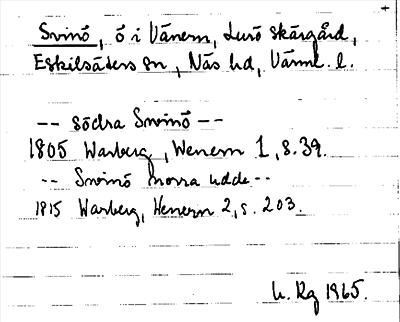 Svinö, ö i Vänern, Lurö skärgård,
Eskilsäters sn, Näs hd, Värml. l.
-- södra Svinö --
1805 Warberg, Wenern 1, s. 39.
-- Svinö norra udde --
1815 Warberg, Wenern 2, s. 203.
U. Rg 1965.